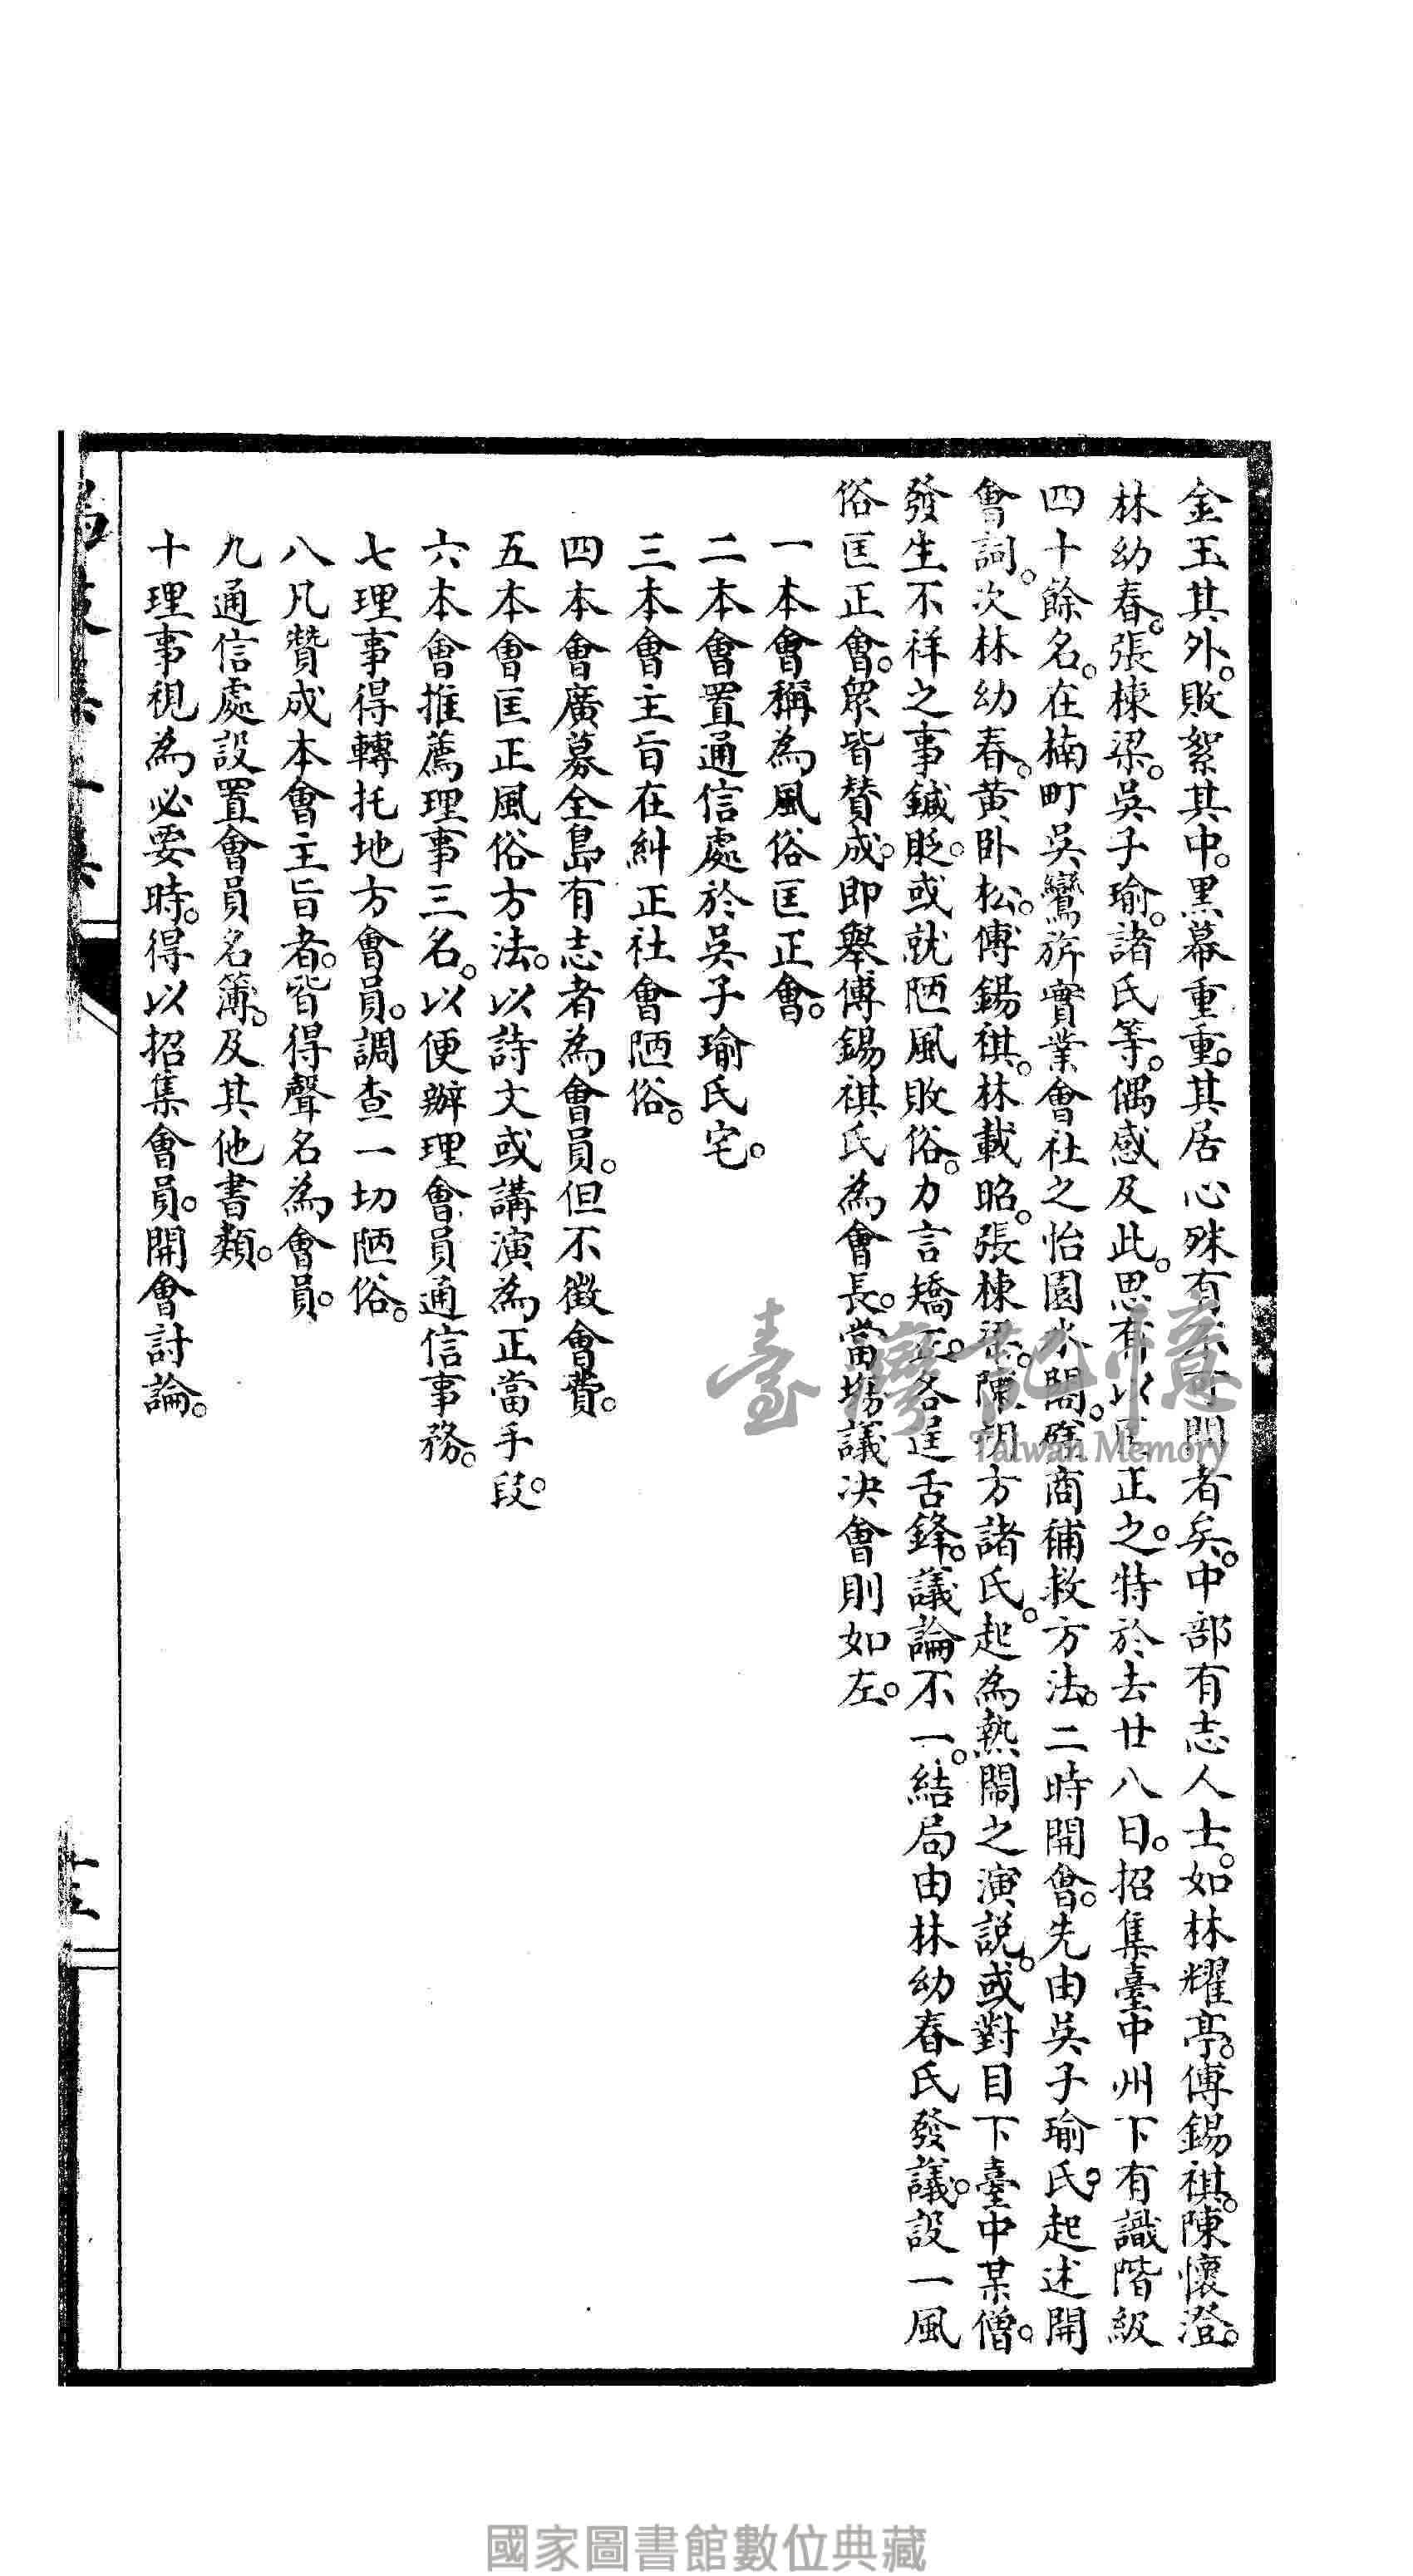 金玉其外。敗絮其中。黑幕重重。其居心殊有不可問者矣。中部有志人士。如林耀亭。傅錫祺。陳懷澄。
林幼春。張棟梁。吳子瑜。諸氏等。偶感及此。思有以匡正之。特於去廿八日。招集臺中州下有識階級
四十餘名。在楠町吳鸞旂實業會社之怡園水閣。磋商補救方法。二時開會。先由吳子瑜氏。起述開
會詞。次林幼春。黃卧松。傅錫祺。林載昭。張棟梁。陳朔方諸氏。起為熱鬧之演説。或對目下臺中某僧。
發生不祥之事鍼貶。或就陋風敗俗。力言矯正。各逞舌鋒。議論不一。結局由林幼春氏發議。設一風
俗匡正會。眾皆贊成。即舉傅錫祺氏為會長。當場議决會則如左。
一本會稱為風俗匡正會。
二本會置通信處於吳子瑜氏宅。
三本會主旨在糾正社會陋俗。
四本會廣募全島有志者為會員。但不徵會費。
五本會匡正風俗方法。以詩文或講演為正當手段。
六本會推薦理事三名。以便辦理會員通信事務。
七理事得轉托地方會員。調查一切陋俗。
八凡贊成本會主旨者。皆得聲名為會員。
九通信處設置會員名簿。及其他書類。
十理事視為必要時。得以招集會員。開會討論。
臺灣記憶
Taiwan Memory
國家圖書館數位典藏